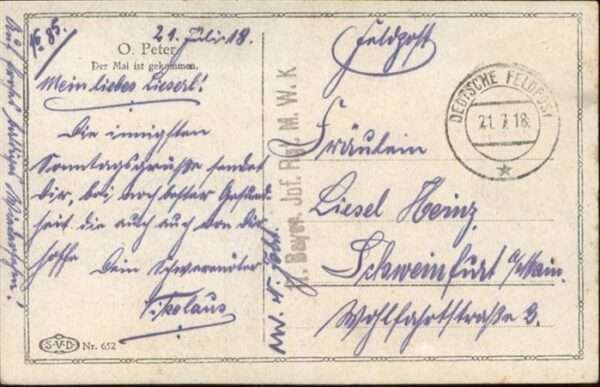 No 85./
21. Juli 18.
O. Peter
Der Mai ist gekommen.
Mein liebes Lieserl!
Die innigsten
Sonntagsgrüße sendet
Dir, bei noch bester Gesund-
heit die auch auch von Dir
hoffe
Dein Schwerenöter
Nikolaus
Auf recht baldiges Wiedersehen!
S.V.D. Nr. 652
Feldpost
DEUTSCHE FELDPOST
21.7.18.
Bayer. Inf. M. W. K
Fräulein
Liesel Heinz
Schweinfurt a/Main.
Wohlfahrtstraße 3.